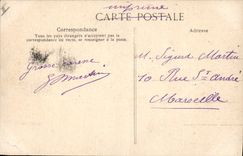 imprimé
CARTE POSTALE
Correspondance
Adresse
Tous les pays étrangers n'acceptent pas la
correspondance au verso, se renseigner à la poste.
M. Sigurd Martin
10 Rue St André
Marseille